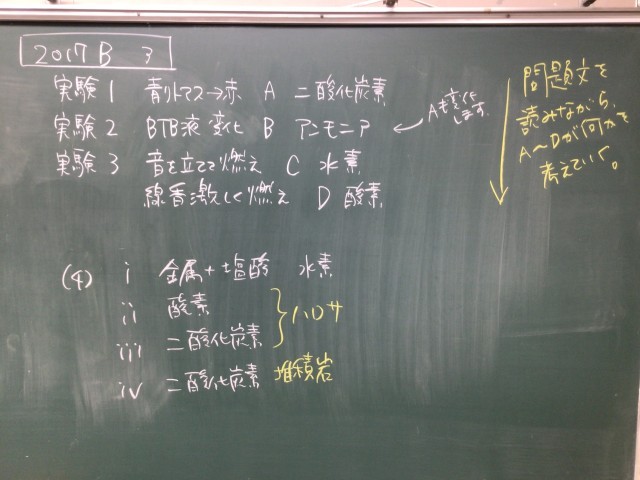 2017 B 3
実験1 青リトマス→赤 A 二酸化炭素
実験2 BTB液 変化 B アンモニア ← Aも変化します
実験3 音を立てて燃え C 水素
線香激しく燃え D 酸素
問題文を
読みながら、
A〜Dが何かを
考えていく。
(4) i 金属+塩酸 水素
ii 酸素
iii 二酸化炭素
iv 二酸化炭素 堆積岩